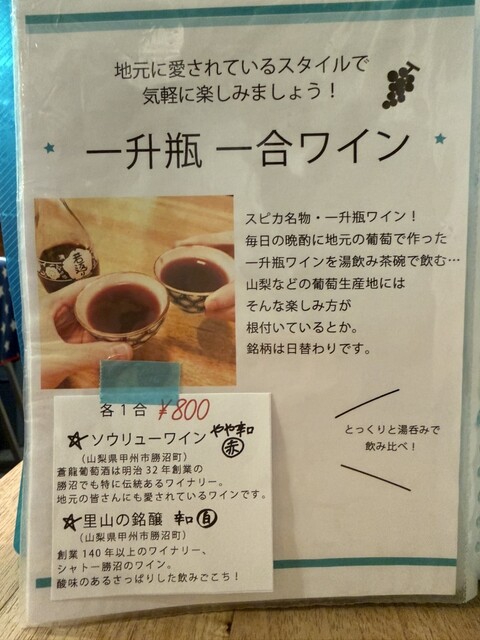 地元に愛されているスタイルで
気軽に楽しみましょう！
一升瓶 一合ワイン
スピカ名物・一升瓶ワイン！
毎日の晩酌に地元の葡萄で作った
一升瓶ワインを湯飲み茶碗で飲む…
山梨などの葡萄生産地には
そんな楽しみ方が
根付いているとか。
銘柄は日替わりです。
各１合 ¥800
☆ソウリューワイン やや辛口 赤
（山梨県甲州市勝沼町）
蒼龍葡萄酒は明治 32 年創業の
勝沼でも特に伝統あるワイナリー。
地元の皆さんにも愛されているワインです。
☆里山の銘醸 辛口 白
（山梨県甲州市勝沼町）
創業 140 年以上のワイナリー、
シャトー勝沼のワイン。
酸味のあるさっぱりした飲みごこち！
とっくりと湯呑みで
飲み比べ！